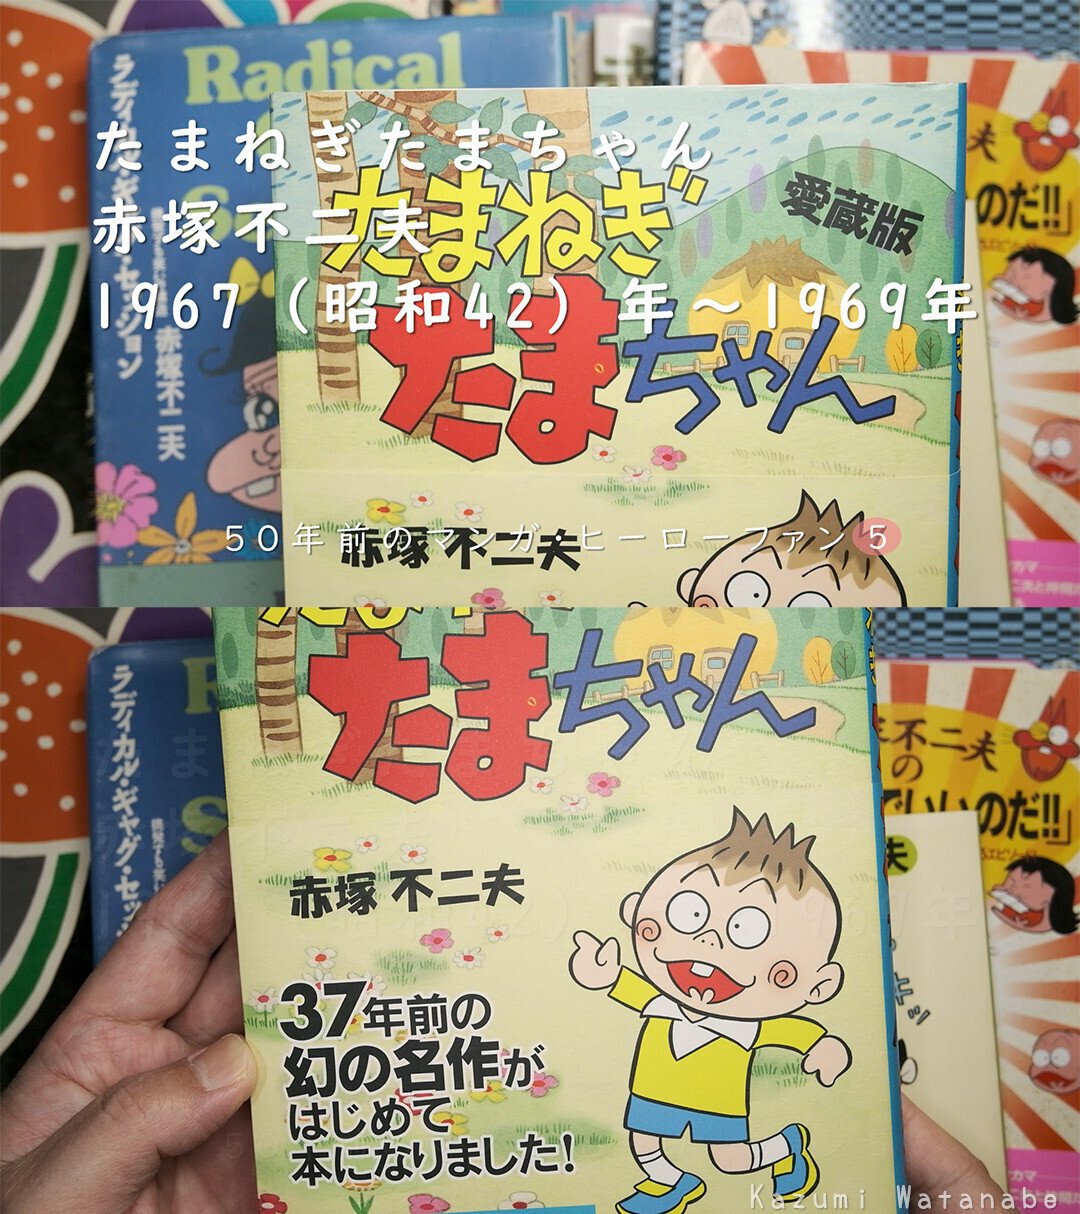 Radical
ラディカル・ギャグ・セッション
赤塚不二夫
たまねぎたまちゃん
赤塚不二夫
1967（昭和42）年～1969年
50年前のマンガ・ヒーローファン5
たまねぎ
たまちゃん
愛蔵版
赤塚不二夫
夫
のだ!!」
たまちゃん
赤塚不二夫
37年前の
幻の名作が
はじめて
本になりました!
ラディカル・ギャグ・セッ
不二夫
の
でいいのだ!!」
夫
Kazumi Watanabe